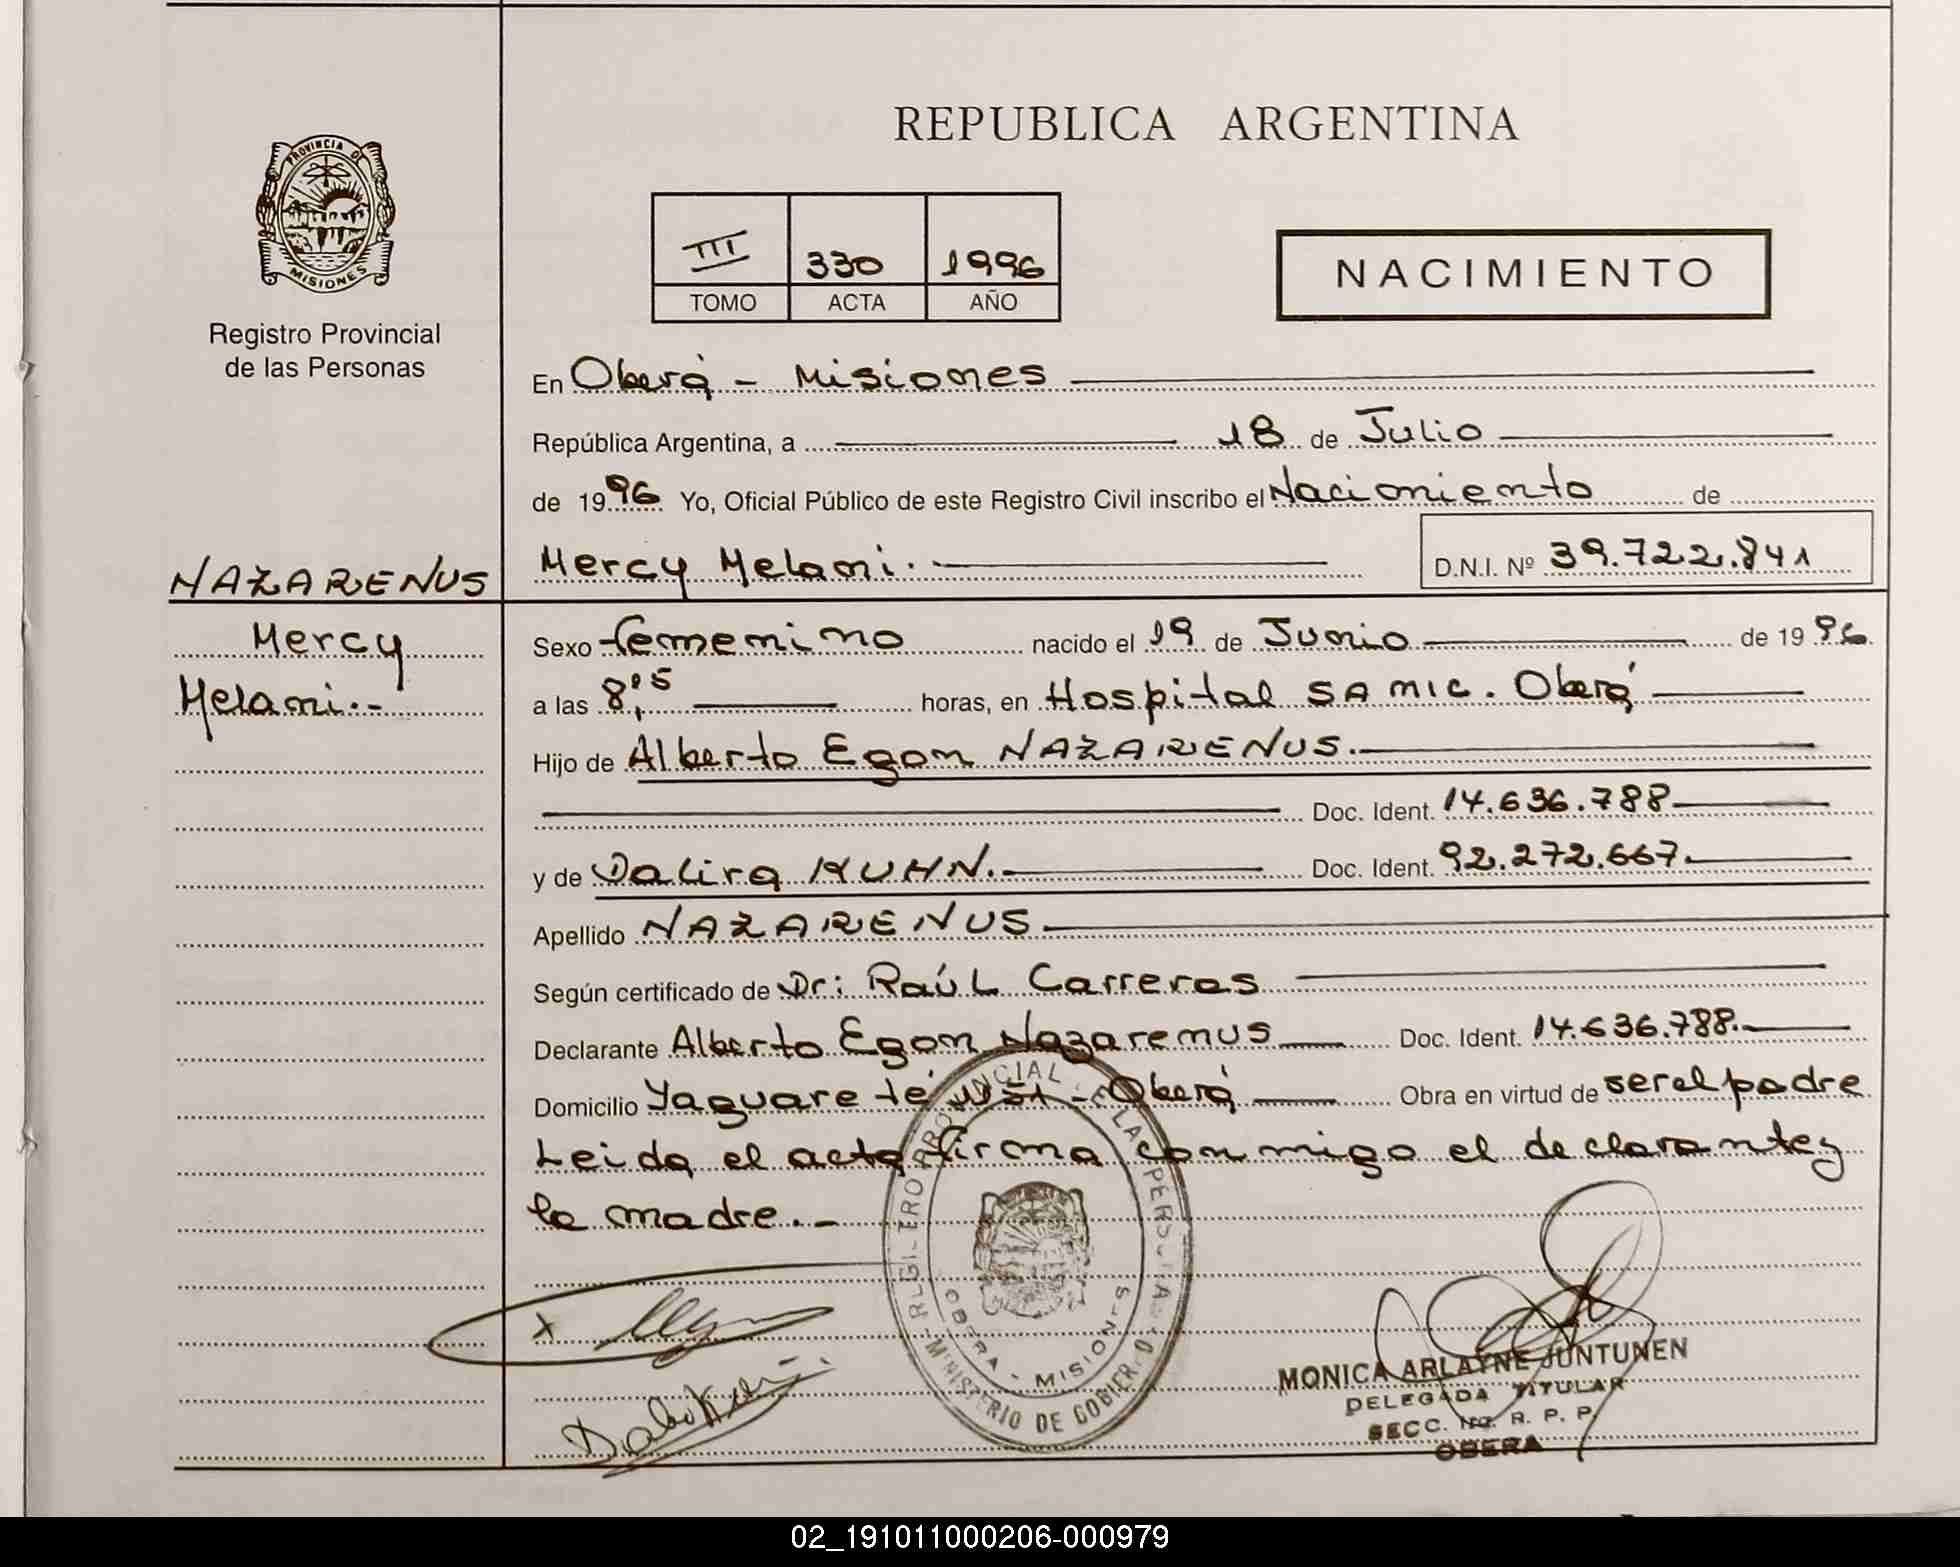 PROVINCIA DE
MISIONES
Registro Provincial
de las Personas
REPUBLICA ARGENTINA
III 330 1996
TOMO ACTA AÑO
NACIMIENTO
En Oberá - Misiones
República Argentina, a 18 de Julio
de 1996 Yo, Oficial Público de este Registro Civil inscribo el Nacimiento de
Mercy Melani.- D.N.I. Nº 39.722.841
NAZARENUS
Mercy
Melani.-
Sexo femenino nacido el 19 de Junio de 1996
a las 8,05 horas, en Hospital SAMIC. Oberá
Hijo de Alberto Egon NAZARENUS.
Doc. Ident. 14.636.788
y de Dalira KUHN. Doc. Ident. 92.272.667.
Apellido NAZARENUS
Según certificado de Dr: Raúl Carreras
Declarante Alberto Egon Nazarenus Doc. Ident. 14.636.788.
Domicilio Yaguareté 1151 - Oberá Obra en virtud de ser el padre
Leida el acta firma conmigo el declarante y
la madre.-
REGISTRO PROVINCIAL DE LAS PERSONAS
MINISTERIO DE GOBIERNO
OBERA - MISIONES
x
MONICA ARLAYNE JUNTUNEN
DELEGADA TITULAR
SECC. R. P. P.
OBERA
02_191011000206-000979